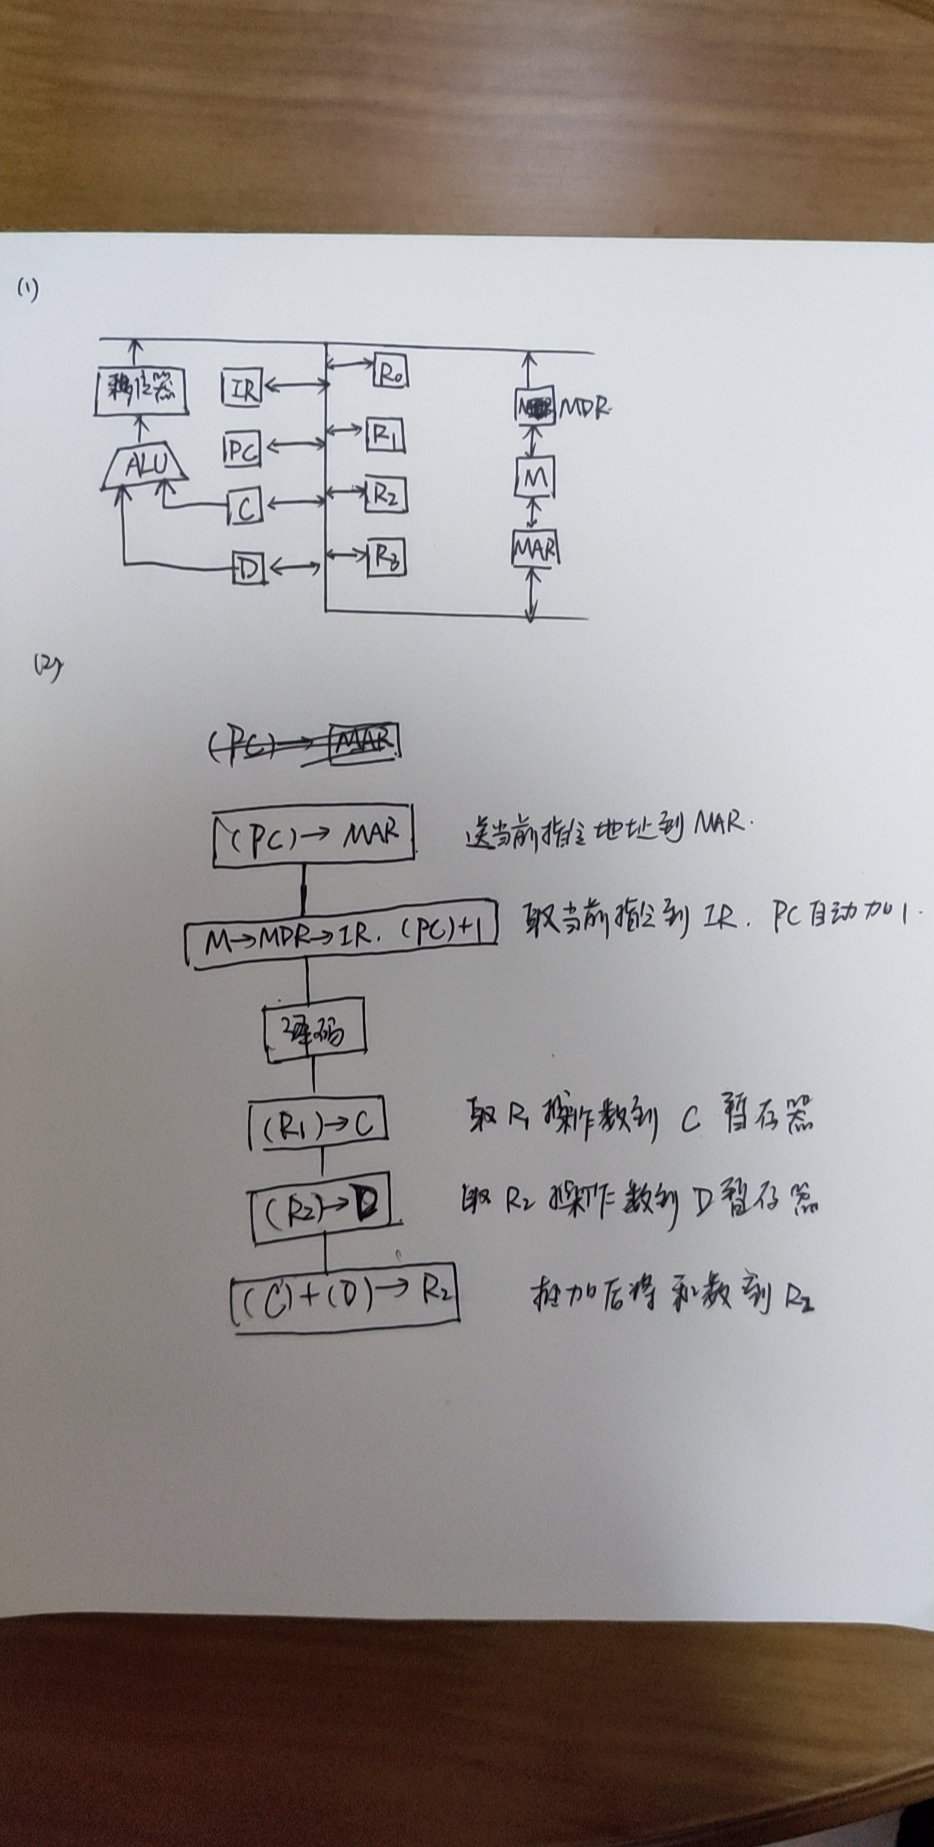 (1)
移位器
IR
R0
MDR
ALU
PC
R1
M
C
R2
MAR
D
R3
(2)
(PC)→MAR
(PC)→MAR 送当前指令地址到MAR.
M→MDR→IR. (PC)+1 取当前指令到IR. PC自动加1.
译码
(R1)→C 取R1操作数到C暂存器
(R2)→D 取R2操作数到D暂存器
(C)+(D)→R2 相加后将和数到R2